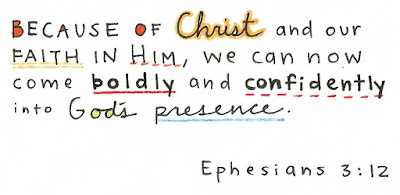 BECAUSE OF Christ and our
FAITH IN HIM, we can now
come boldly and confidently
into God's presence.
Ephesians 3:12